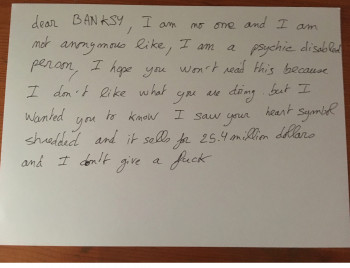 dear BANKSY, I am no one and I am
not anonymous like, I am a psychic disabled
person, I hope you won't read this because
I don't like what you are doing but I
wanted you to know I saw your heart symbol
shredded and it sells for 25.4 million dollars
and I don't give a fuck